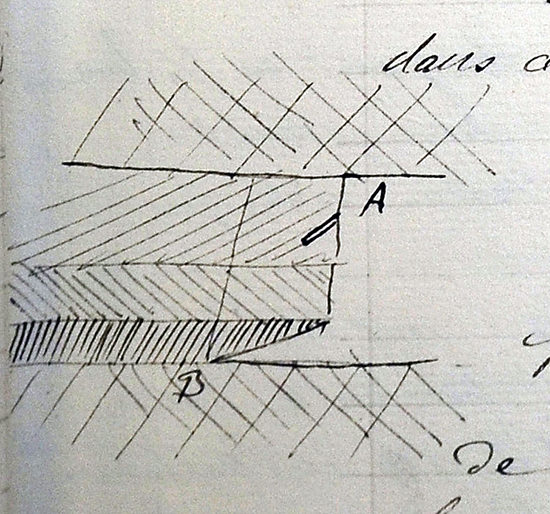 dans
A
B
De